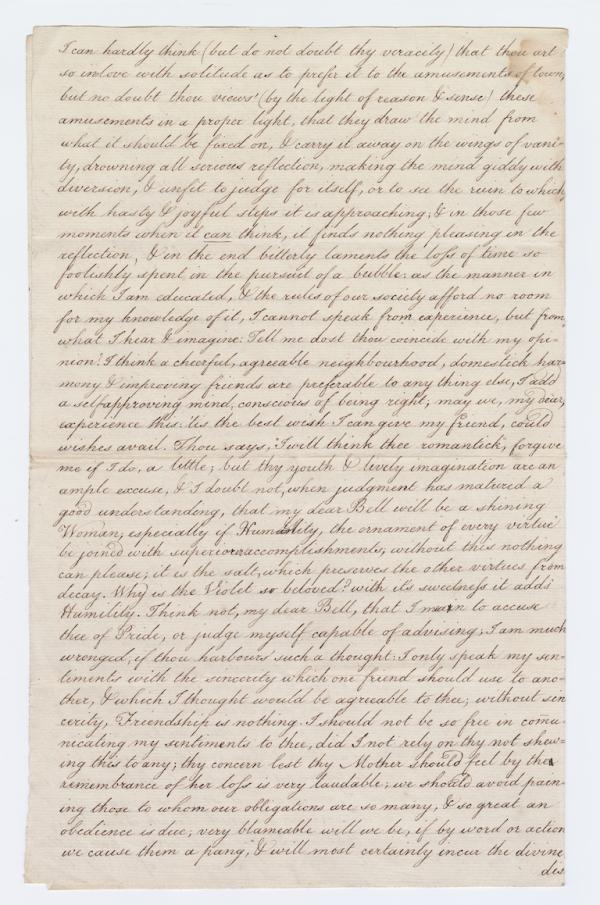 I can hardly think (but do not doubt thy veracity) that thou art
so in love with solitude as to prefer it to the amusements of town,
but no doubt thou views (by the light of reason & sense) these
amusements in a proper light, that they draw the mind from
what it should be fixed on, & carry it away on the wings of vani-
ty, drowning all serious reflection, making the mind giddy with
diversion, & unfit to judge for itself, or to see the ruin to which
with hasty & joyful steps it is approaching; & in those few
moments when it can think, it finds nothing pleasing in the
reflection, & in the end bitterly laments the loſs of time so
foolishly spent in the pursuit of a bubble: as the manner in
which I am educated, & the rules of our society afford no room
for my knowledge of it, I cannot speak from experience, but from
what I hear & imagine: Tell me dost thou coincide with my opi-
nion? I think a cheerful, agreeable neighbourhood, domestick har-
mony & improving friends are preferable to any thing else, I add
a selfapproving mind, conscious of being right, may we, my dear,
experience this: tis the best wish I can give my friend, could
wishes avail. Thou says, I will think thee romantick; forgive
me if I do, a little; but thy youth & lively imagination are an
ample excuse, & I doubt not, when judgment has matured a
good understanding, that my dear Bell will be a shining
Woman; especially if Humility, the ornament of every virtue
be joined with superior accomplishments, without this nothing
can please; it is the salt, which preserves the other virtues from
decay. Why is the Violet so beloved? with it's sweetneſs it adds
Humility. Think not, my dear Bell, that I mean to accuse
thee of Pride, or judge myself capable of advising; I am much
wronged, if thou harbours such a thought: I only speak my sen-
timents with the sincerity which one friend should use to ano-
ther, & which I thought would be agreeable to thee; without sin
cerity, Friendship is nothing. I should not be so free in comu-
nicating my sentiments to thee, did I not rely on thy not shew-
ing this to any; thy concern lest thy Mother should feel by the
remembrance of her loſs is very laudable; we should avoid pain-
ing those to whom our obligations are so many, & so great an
obedience is due; very blameable will we be, if by word or action
we cause them a pang, & will most certainly incur the divine
dis